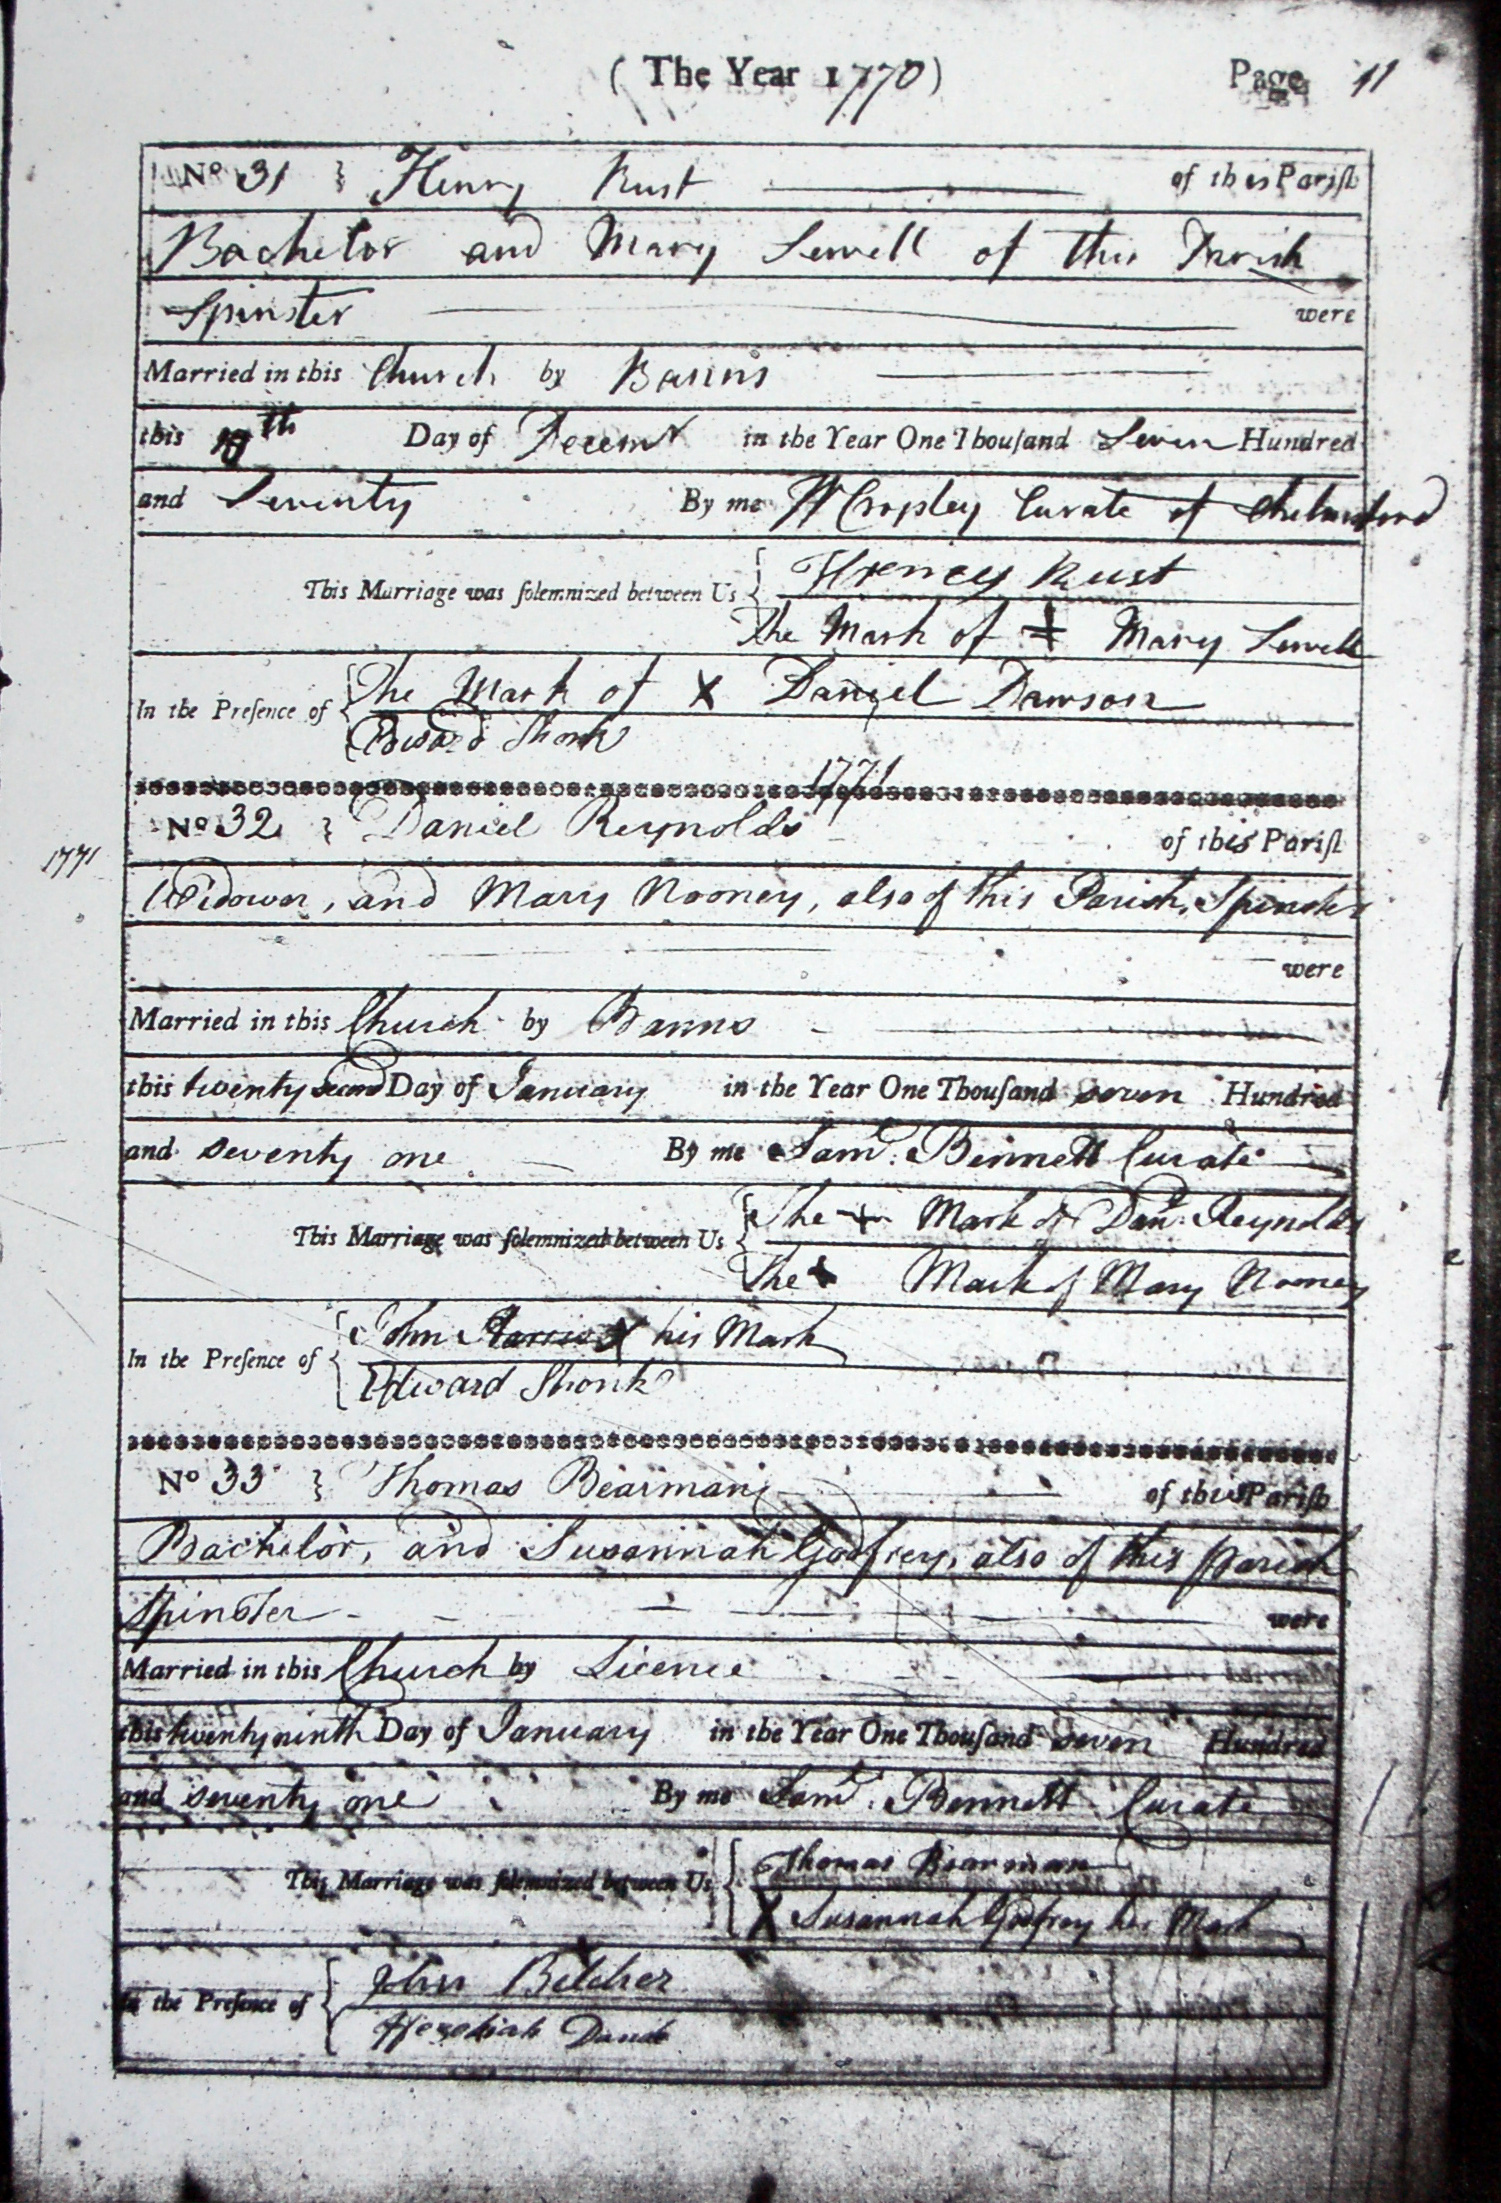 ( The Year 1770 ) Page 11
No 31 } Henry Rust of this Parish
Bachelor and Mary Sewell of this Parish
Spinster were
Married in this Church by Banns
this th Day of Decemr in the Year One Thouſand Seven Hundred
and Seventy By me W Cropley Curate of Chelmsford
This Marriage was ſolemnized between Us { Henery Rust
The Mark of + Mary Sewell
In the Preſence of { The Mark of X Daniel Dawson
Edward Shonk
1771
No 32 } Daniel Reynolds of this Pariſh
1771
Widower, and Mary Nooney, also of this Parish, Spinster
were
Married in this Church by Banns
this twenty second Day of January in the Year One Thouſand seven Hundred
and seventy one By me Saml. Bennett Curate
This Marriage was ſolemnized between Us { The + Mark of Danl. Reynolds
The + Mark of Mary Nooney
In the Preſence of { John X his Mark
Edward Shonk
No 33 } Thomas Bearman of this Pariſh
Bachelor, and Susannah Godfrey, also of this Parish
Spinster were
Married in this Church by Licence
this twenty ninth Day of January in the Year One Thouſand seven Hundred
and seventy one By me Saml. Bennett Curate
This Marriage was ſolemnized between Us { Thomas Bearman
X Susannah Godfrey her Mark
In the Preſence of { John Belcher
Hezekiah